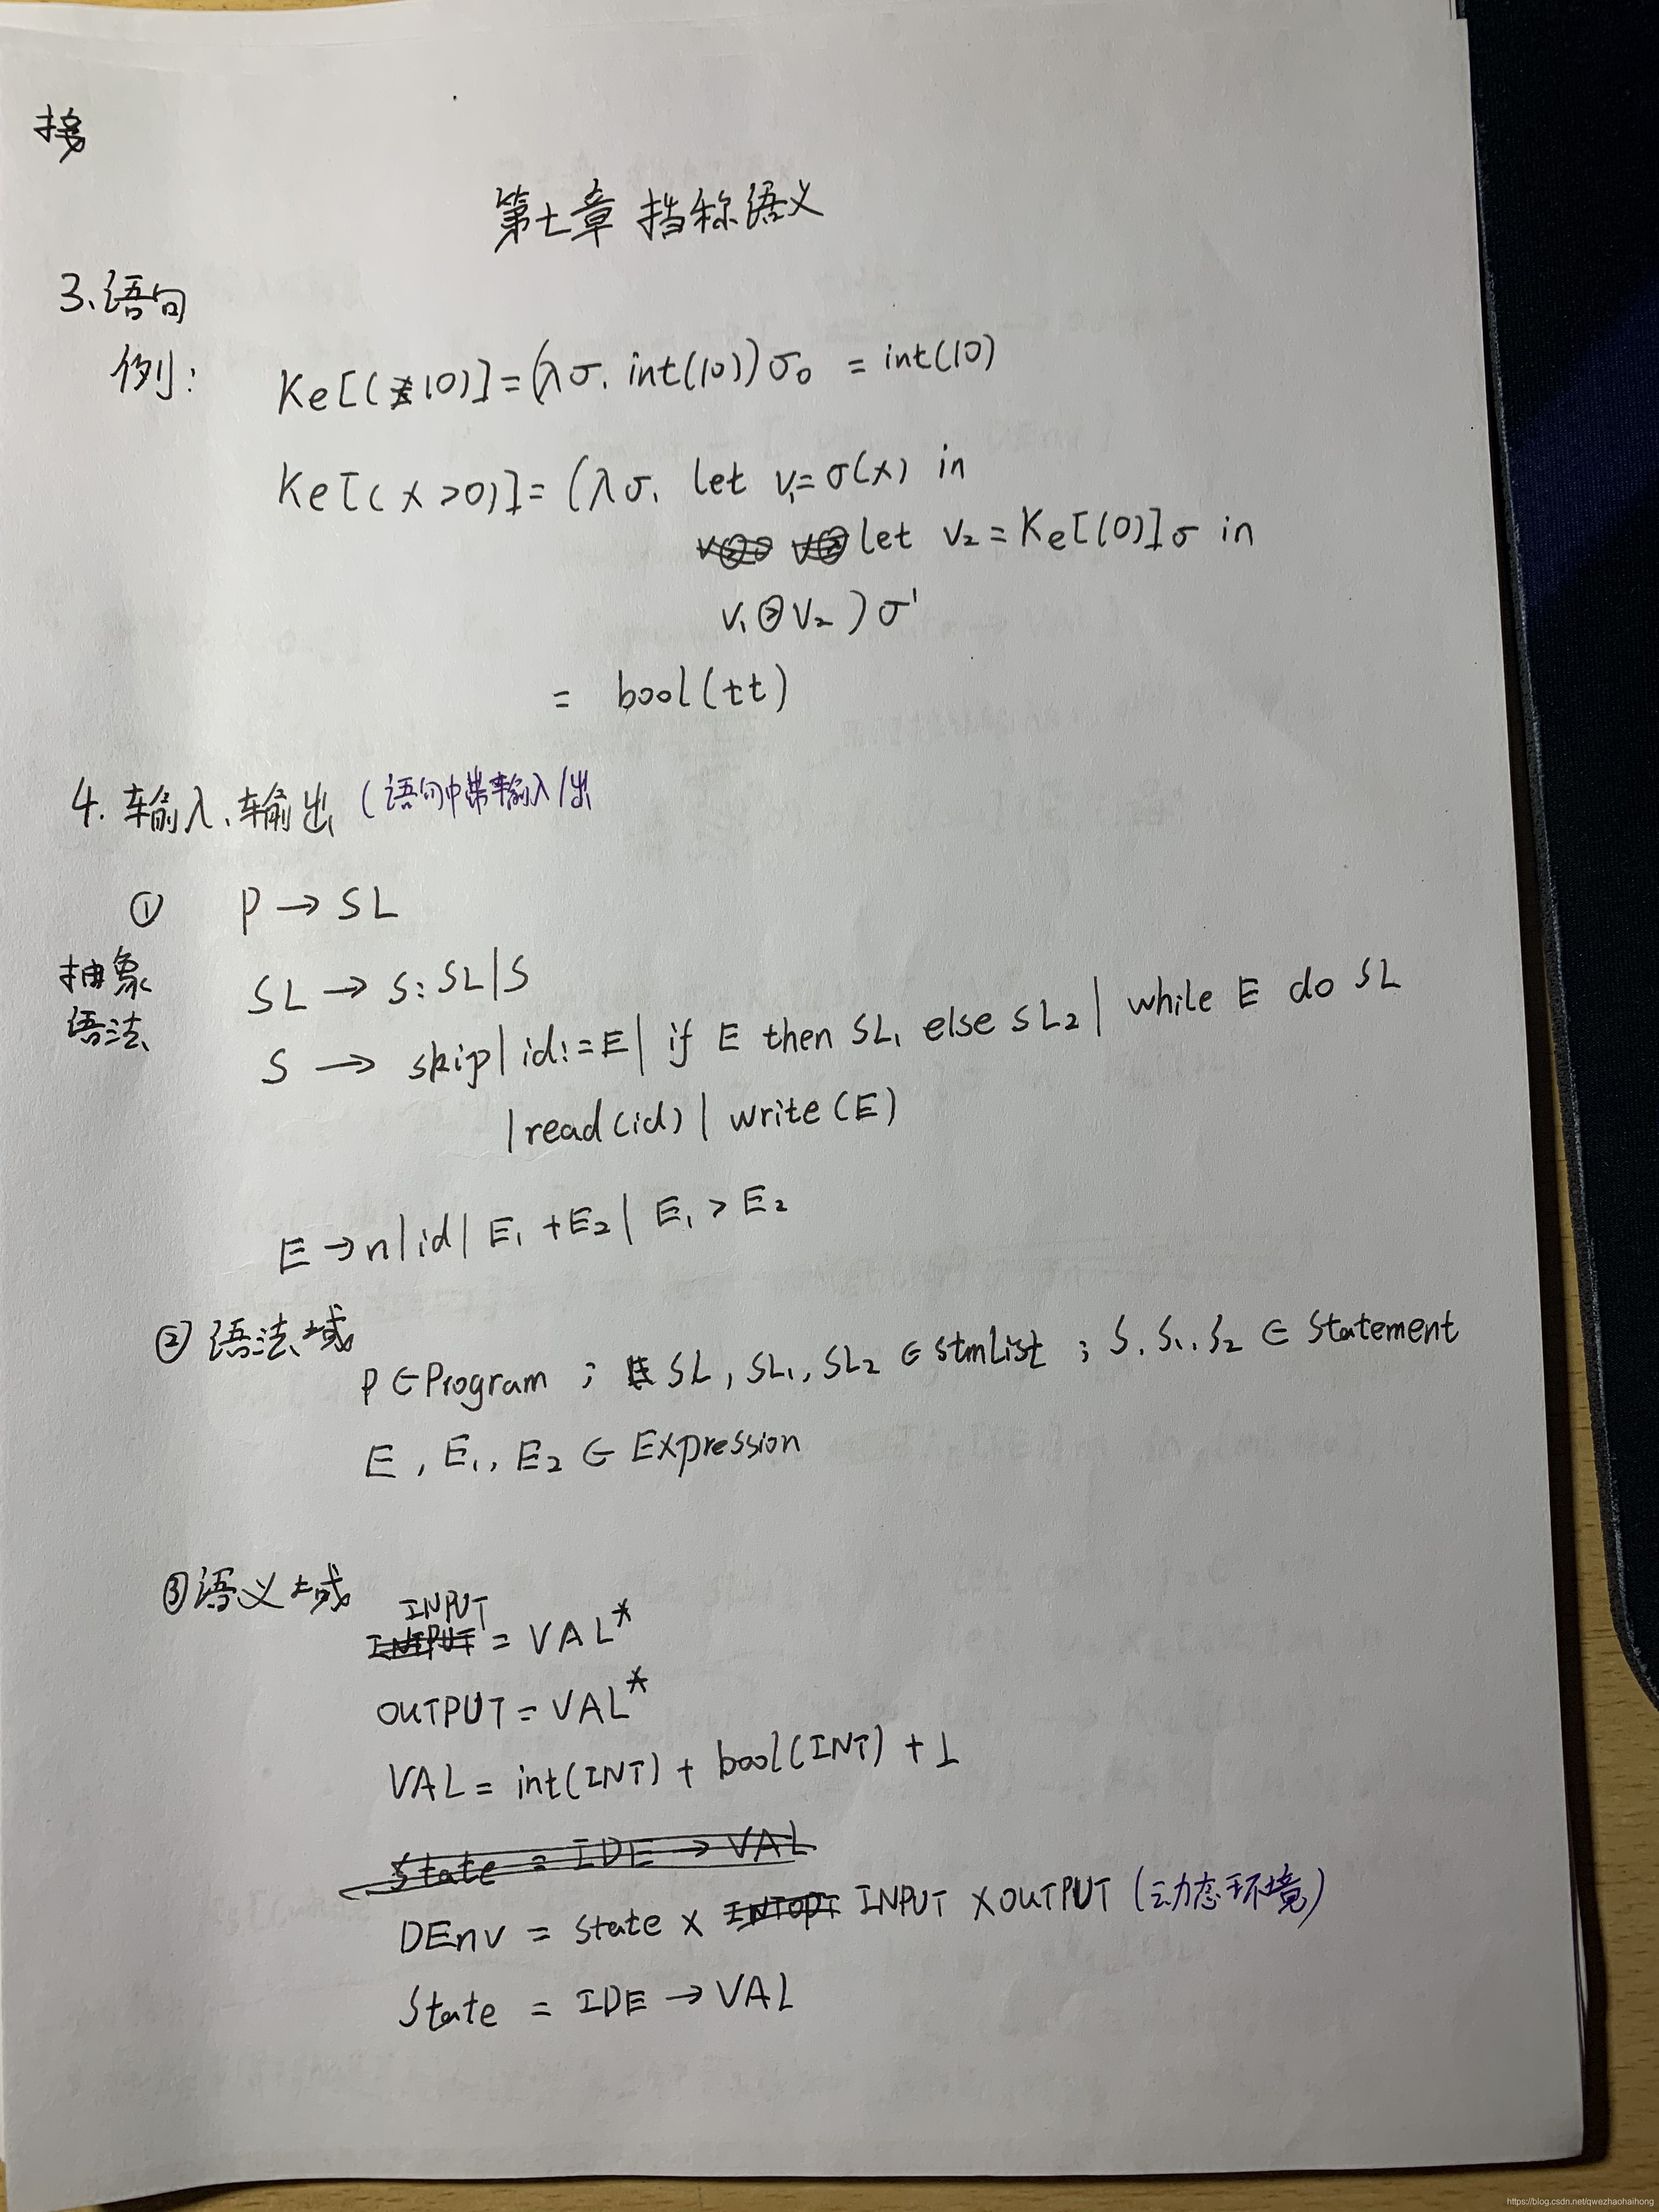 接
第七章 挡称语义
3、语句
例: Ke[(10)] = (λσ. int(10))σ₀ = int(10)
Ke[(x>0)] = (λσ. let v₁=σ(x) in
let v₂=Ke[(0)]σ in
v₁ⓧv₂)σ'
= bool(tt)
4. 输入、输出 (语句中带输入/出
① P → SL
抽象
语法
SL → S; SL|S
S → skip| id:=E| if E then SL₁ else SL₂| while E do SL
|read(id)| write(E)
E → n|id| E₁+E₂| E₁>E₂
② 语法域
P∈Program ; SL, SL₁, SL₂ ∈ StmList ; S, S₁, S₂ ∈ Statement
E, E₁, E₂ ∈ Expression
③ 语义域
INPUT = VAL*
OUTPUT = VAL*
VAL = int(INT) + bool(INT) + ⊥
State = IDE → VAL
DEnv = state × INPUT × OUTPUT (动态环境)
State = IDE → VAL
https://blog.csdn.net/qwezhaohaihong